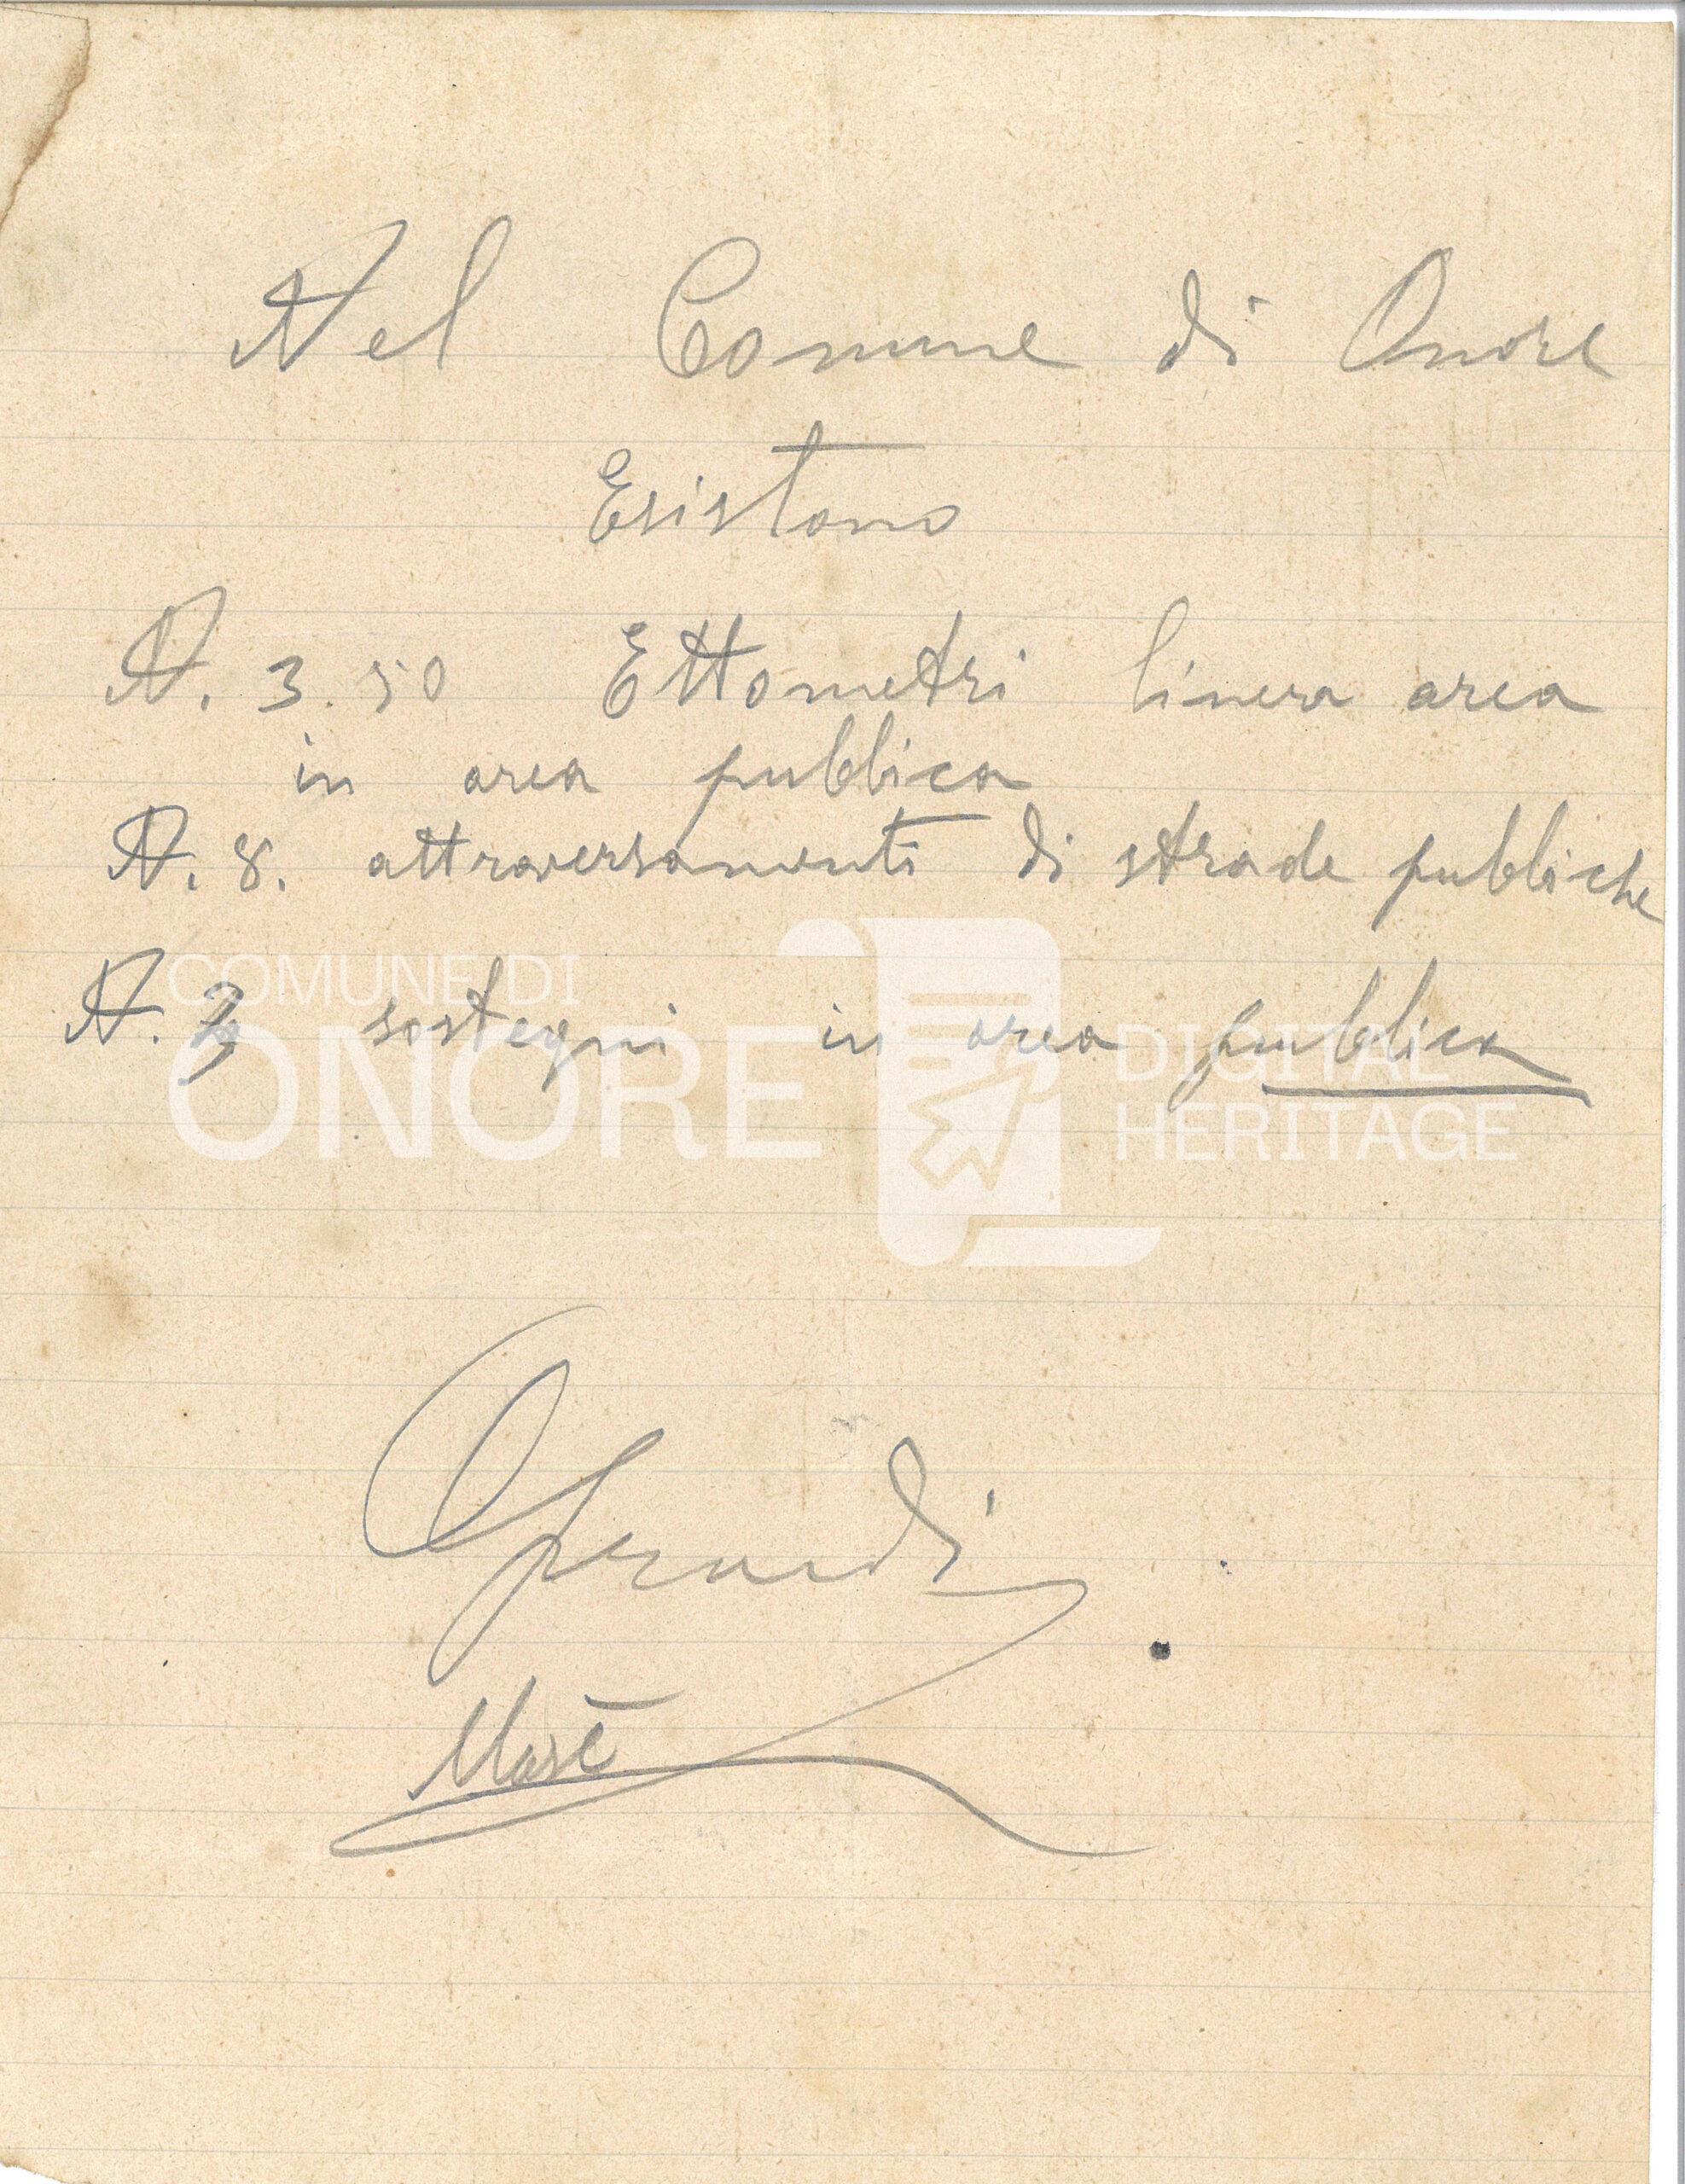 Nel Comune di Onore
Esistono
N. 3.50 Ettometri linera area
in area pubblica
N. 8. attraversamenti di strade pubbliche
N. 3 sostegni in area pubblica
COMUNE DI
ONORE
DIGITAL
HERITAGE
Mosè